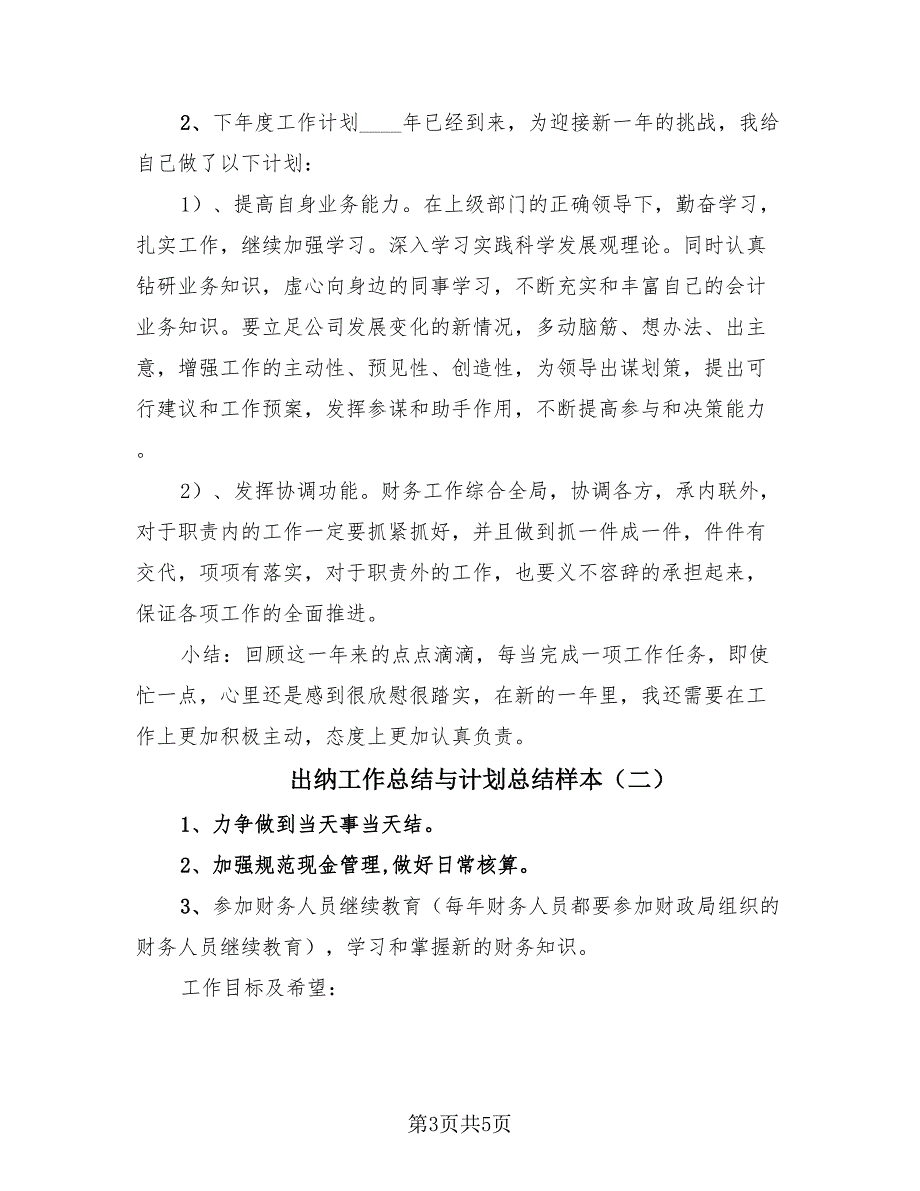 2、下年度工作计划____年已经到来，为迎接新一年的挑战，我给
自己做了以下计划：
1）、提高自身业务能力。在上级部门的正确领导下，勤奋学习，
扎实工作，继续加强学习。深入学习实践科学发展观理论。同时认真
钻研业务知识，虚心向身边的同事学习，不断充实和丰富自己的会计
业务知识。要立足公司发展变化的新情况，多动脑筋、想办法、出主
意，增强工作的主动性、预见性、创造性，为领导出谋划策，提出可
行建议和工作预案，发挥参谋和助手作用，不断提高参与和决策能力
。
2）、发挥协调功能。财务工作综合全局，协调各方，承内联外，
对于职责内的工作一定要抓紧抓好，并且做到抓一件成一件，件件有
交代，项项有落实，对于职责外的工作，也要义不容辞的承担起来，
保证各项工作的全面推进。
小结：回顾这一年来的点点滴滴，每当完成一项工作任务，即使
忙一点，心里还是感到很欣慰很踏实，在新的一年里，我还需要在工
作上更加积极主动，态度上更加认真负责。
出纳工作总结与计划总结样本（二）
1、力争做到当天事当天结。
2、加强规范现金管理,做好日常核算。
3、参加财务人员继续教育（每年财务人员都要参加财政局组织的
财务人员继续教育），学习和掌握新的财务知识。
工作目标及希望：
第3页共5页